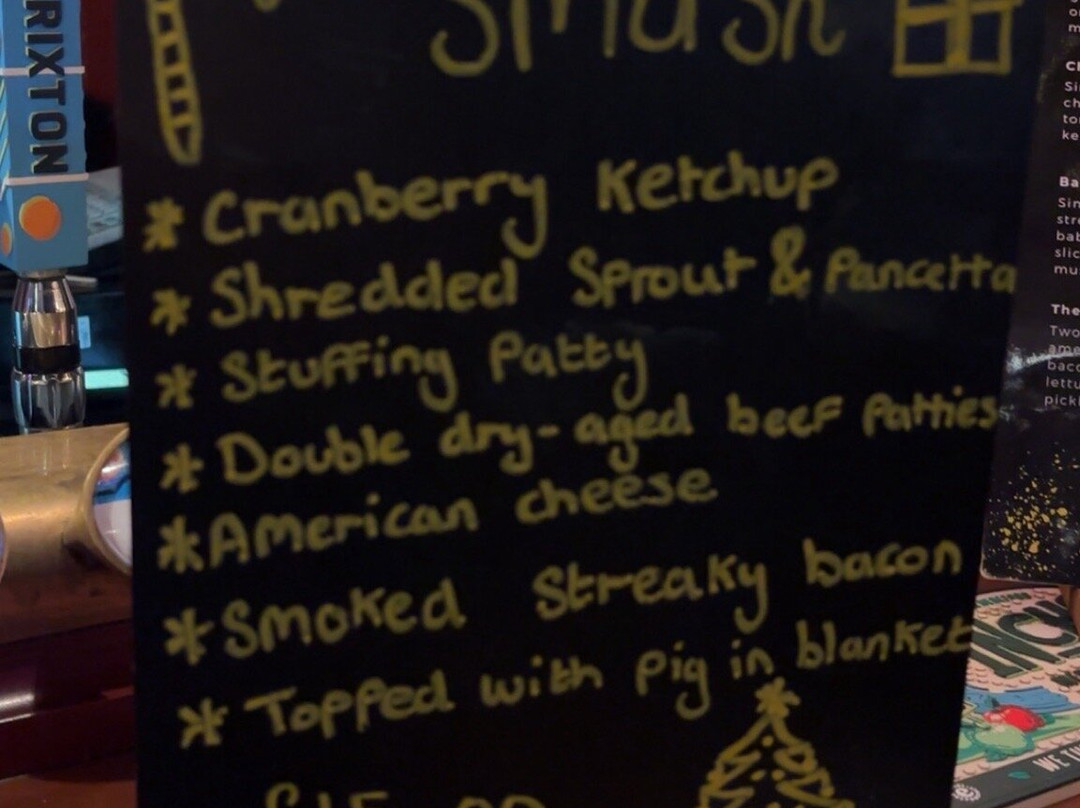 Smash
RIXTON
* Cranberry Ketchup
* Shredded Sprout & Pancetta
* Stuffing Patty
* Double dry-aged beef Patties
* American cheese
* Smoked Streaky bacon
* Topped with pig in blanket
Ba
The
Two